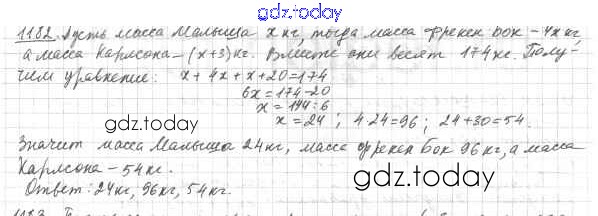 gdz.today
1182. Пусть масса Малыша x кг, тогда масса фрекен бок – 4x кг,
а масса Карлсона – (x+3) кг. Вместе они весят 174 кг. Полу-
чим уравнение: x + 4x + x + 20 = 174
6x = 174 - 20
x = 144 : 6
x = 24 ; 4·24 = 96 ; 24 + 30 = 54.
gdz.today
Значит масса Малыша 24 кг, масса фрекен Бок 96 кг, а масса
Карлсона – 54 кг.
gdz.today
Ответ: 24 кг, 96 кг, 54 кг.